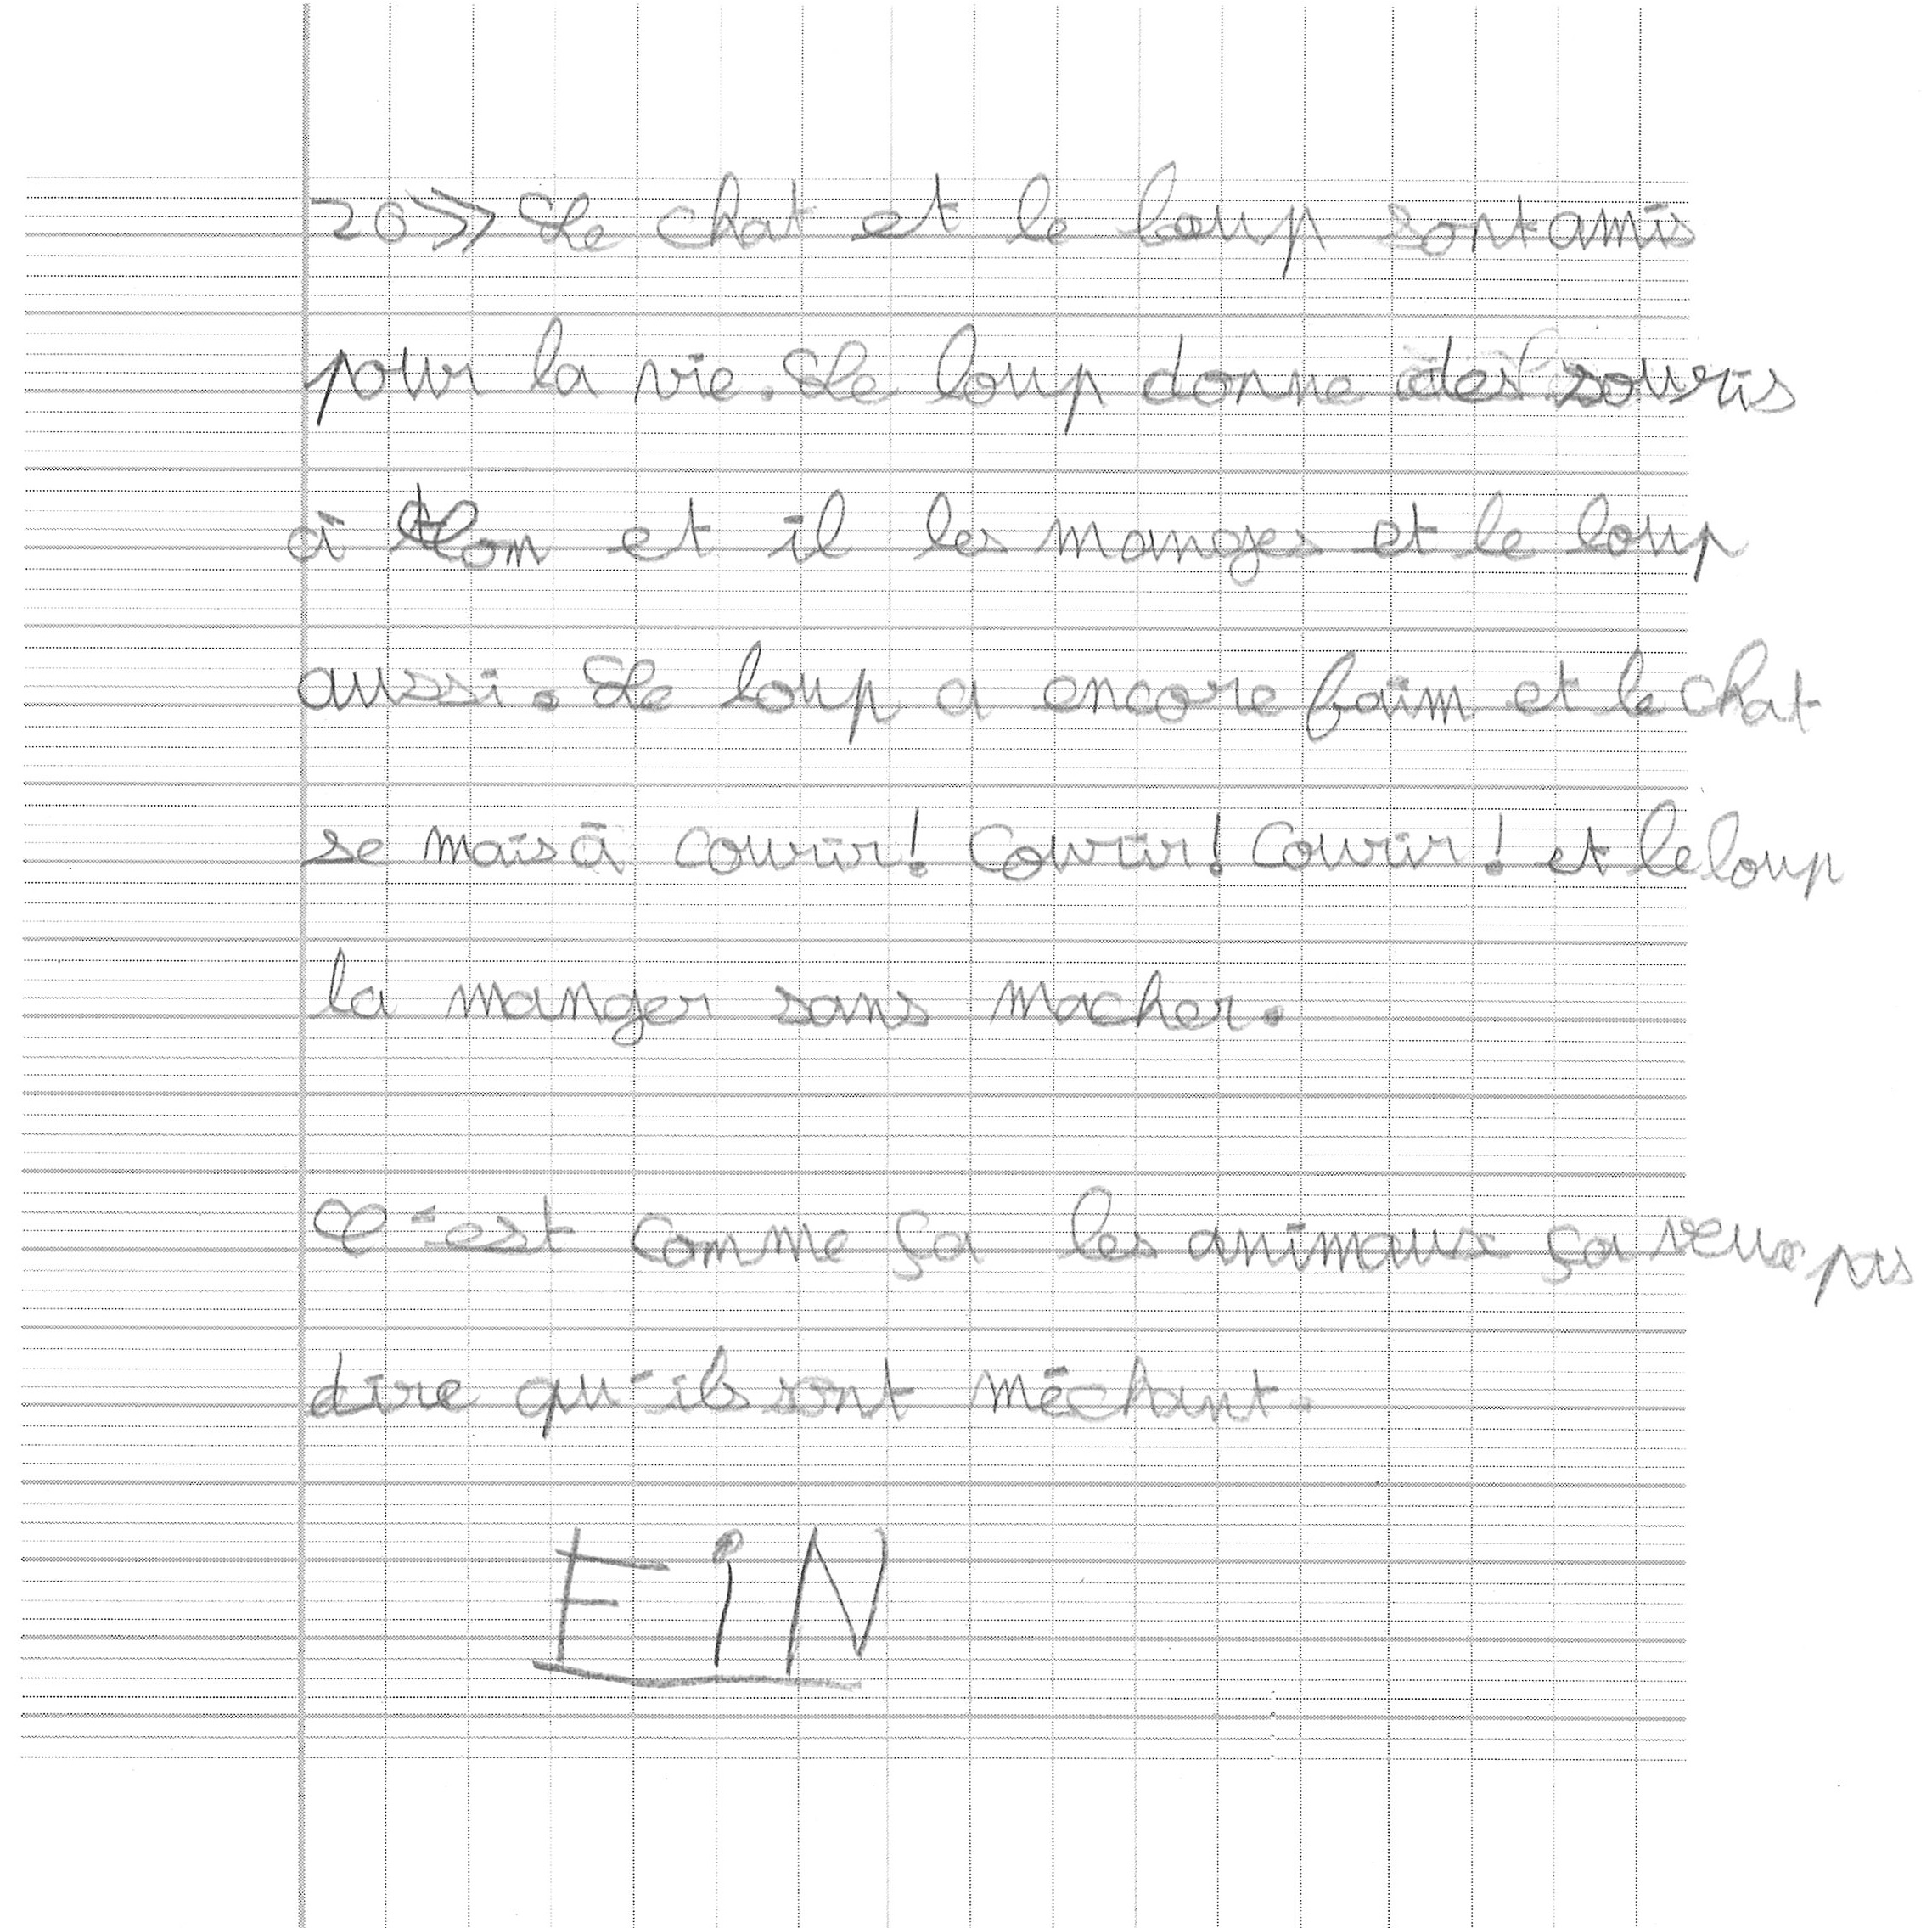 20>> Le chat et le loup sont amis
pour la vie. Le loup donne des souris
à et il les manges et le loup
aussi. Le loup a encore faim et le chat
se mais à courir! Courir! Courir! et le loup
la manger sans macher.
C'est comme ça les animaux ça veux pas
dire qu'ils sont méchant.
FiN